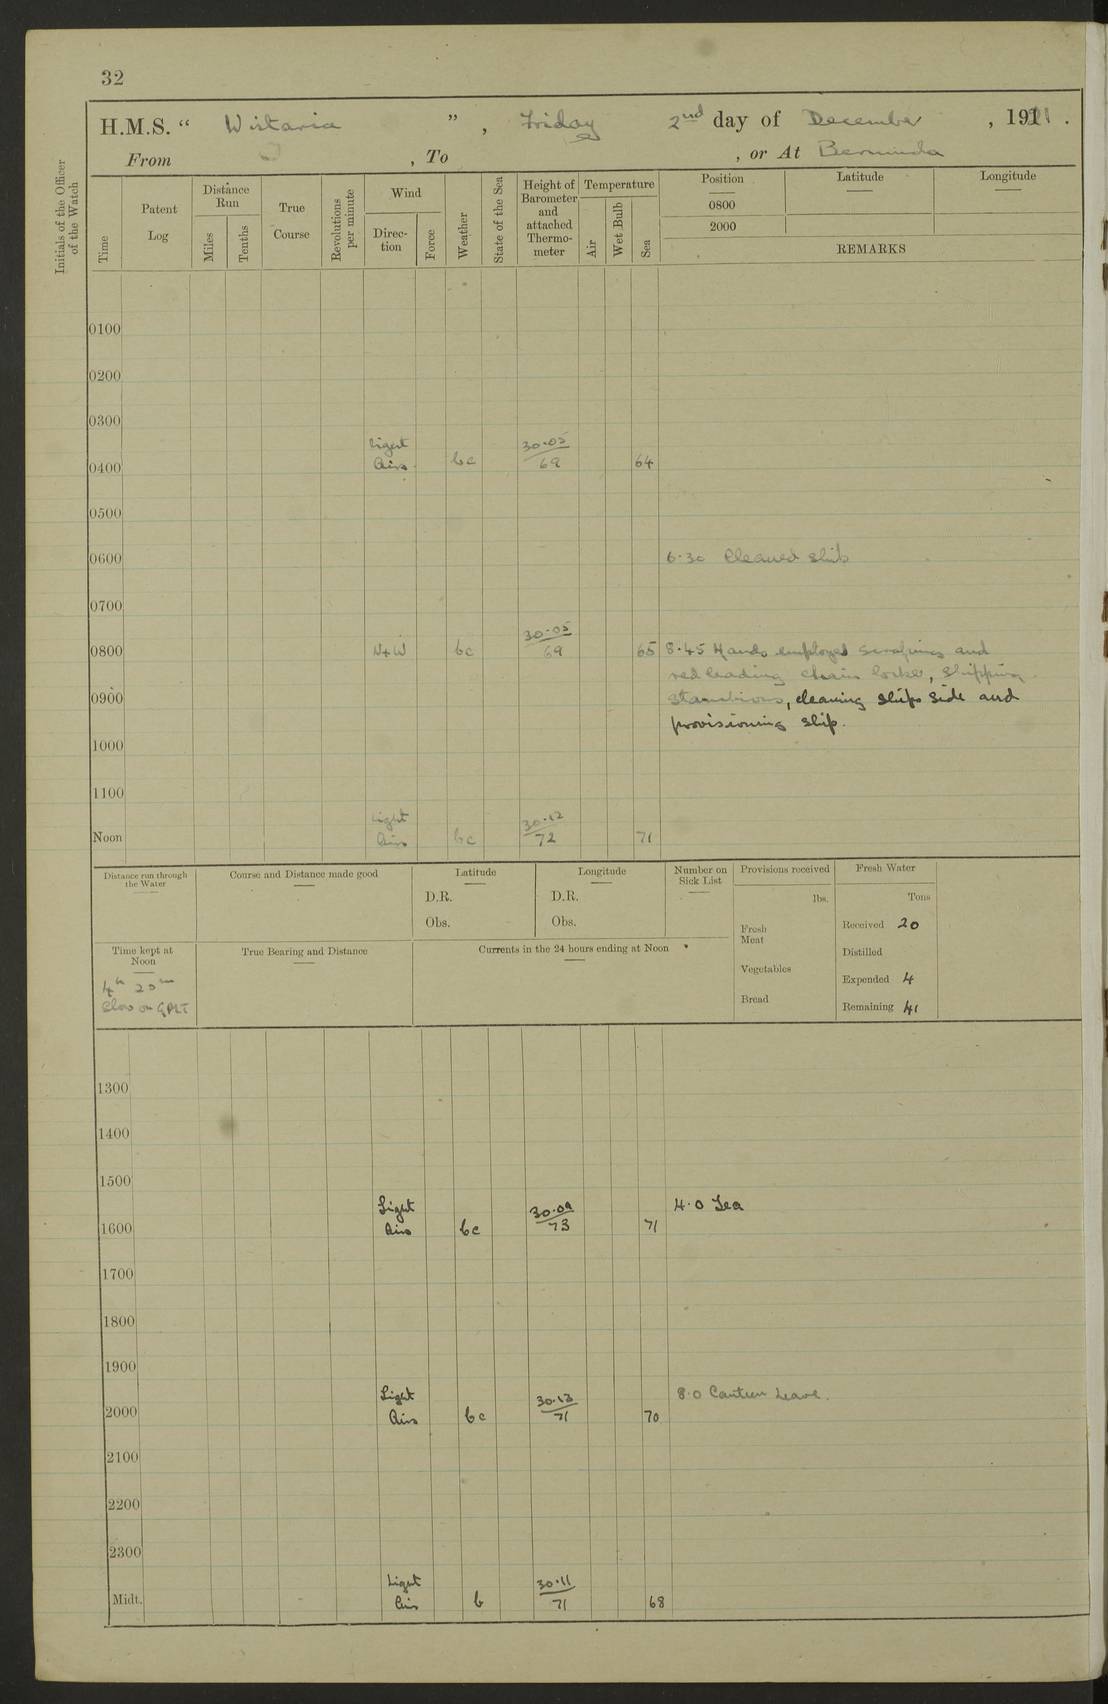 32
H.M.S. “ Wistaria ” , Friday 2nd day of December , 1921 .
From , To , or At Bermuda
Initials of the Officer of the Watch
Time
Patent Log
Distance Run
Miles
Tenths
True Course
Revolutions per minute
Wind
Direc-tion
Force
Weather
State of the Sea
Height of Barometer and attached Thermo-meter
Temperature
Air
Wet Bulb
Sea
Position
0800
2000
Latitude
Longitude
REMARKS
0100
0200
0300
Light 30.05
0400 Airs bc 69 64
0500
0600 6.30 Cleaned ship
0700
30.05
0800 bc 69 65 8.45 Hands employed scraping and
redleading chain locker, shipping
0900 stanchions, cleaning ships side and
provisioning ship.
1000
1100
Light 30.12
Noon Airs bc 72 71
Distance run through the Water
Course and Distance made good
Latitude
D.R.
Obs.
Longitude
D.R.
Obs.
Number on Sick List
Provisions received
lbs.
Fresh Meat
Vegetables
Bread
Fresh Water
Tons
Received 20
Distilled
Expended 4
Remaining 41
Time kept at Noon
4h 20m
slow on GMT
True Bearing and Distance
Currents in the 24 hours ending at Noon
1300
1400
1500
Light 30.09 4.0 Tea
1600 Airs bc 73 71
1700
1800
1900
Light 30.13 8.0 Canteen Leave.
2000 Airs bc 71 70
2100
2200
2300
Light 30.11
Midt. Airs b 71 68